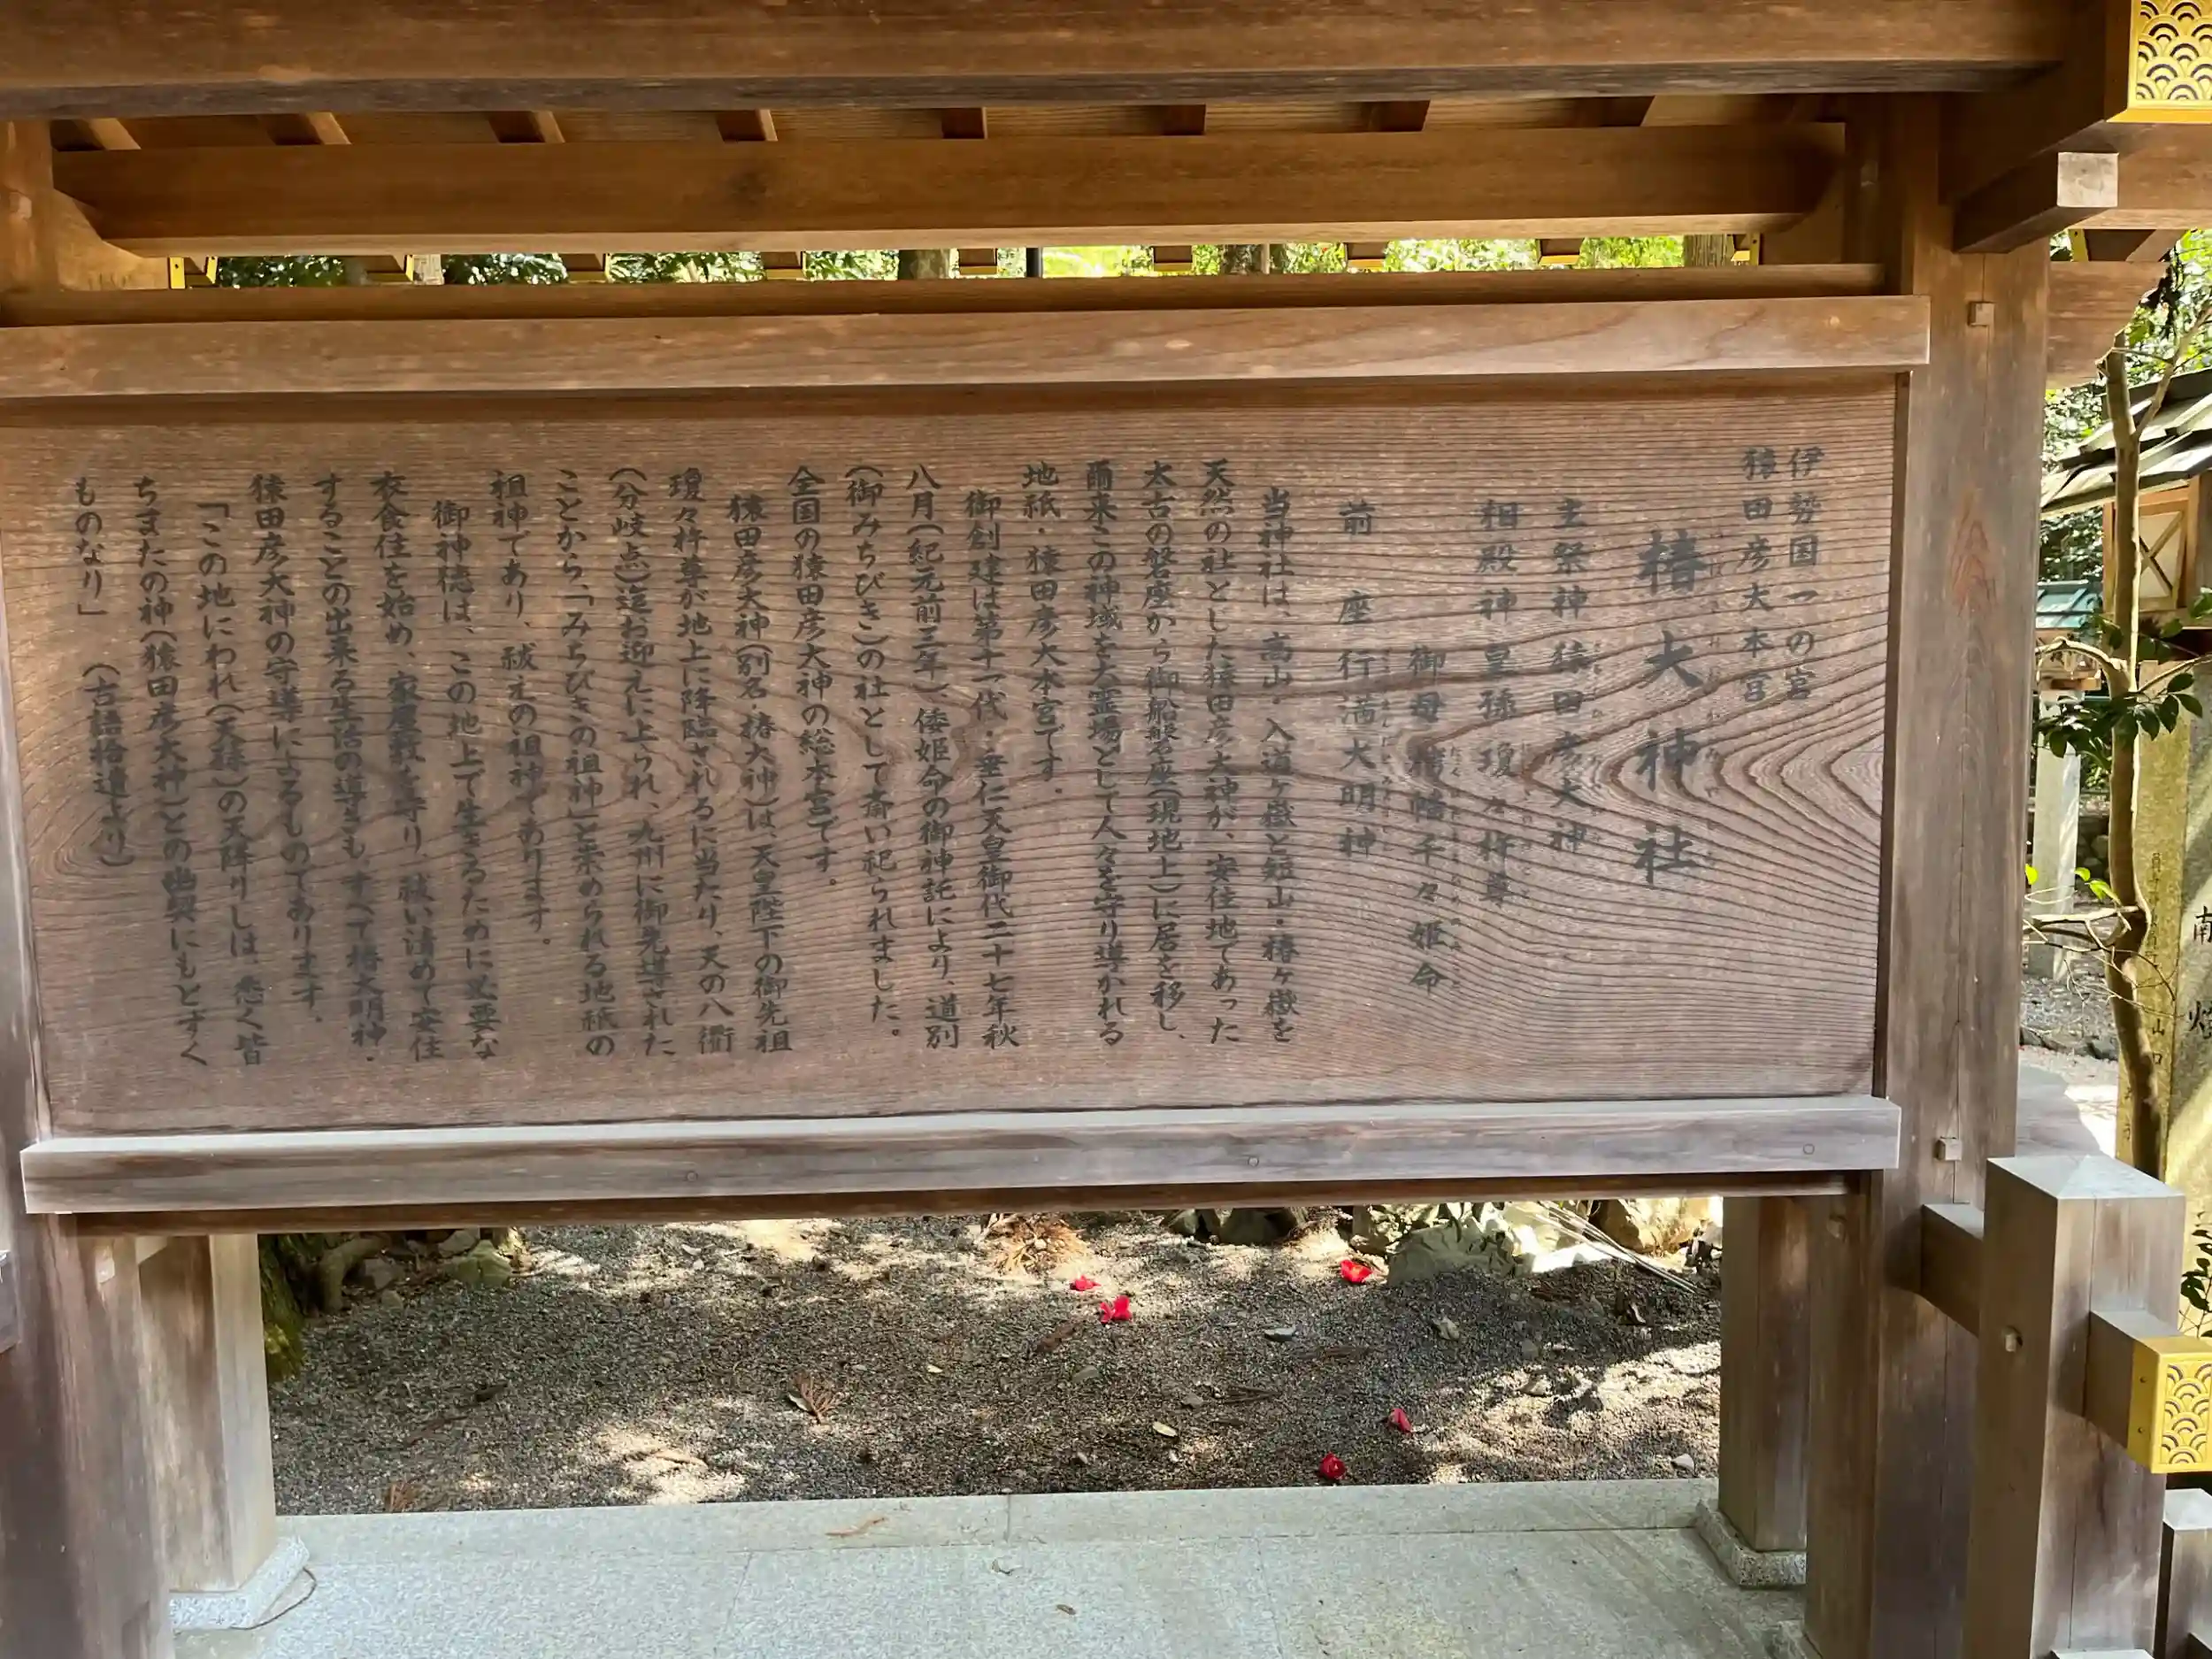 伊勢国一の宮
猿田彦大本宮
椿大神社
主祭神 猿田彦大神
相殿神 皇孫 瓊々杵尊
御母 栲幡千々姫命
前座 行満大明神
当神社は、高山・入道ヶ嶽と短山・椿ヶ嶽を
天然の社とした猿田彦大神が、安住地であった
太古の磐座から御船磐座(現地上)に居を移し、
爾来この神域を大霊場として人々を守り導かれる
地祇・猿田彦大本宮です。
御創建は第十一代・垂仁天皇御代二十七年秋
八月(紀元前三年)、倭姫命の御神託により、道別
(御みちびき)の社として斎い祀られました。
全国の猿田彦大神の総本宮です。
猿田彦大神(別名・椿大神)は、天皇陛下の御先祖
瓊々杵尊が地上に降臨されるに当たり、天の八衢
(分岐点)迄お迎えに上られ、九州に御先導された
ことから、「みちびきの祖神」と崇められる地祇の
祖神であり、祓えの祖神であります。
御神徳は、この地上で生きるために必要な
衣食住を始め、家屋敷を守り、祓い清めて安住
することの出来る生活の導きも、すべて椿大明神・
猿田彦大神の守導によるものであります。
「この地にわれ(天孫)の天降りしは、悉く皆
ちまたの神(猿田彦大神)との幽契にもとずく
ものなり」 (古語拾遺より)
南
山
口